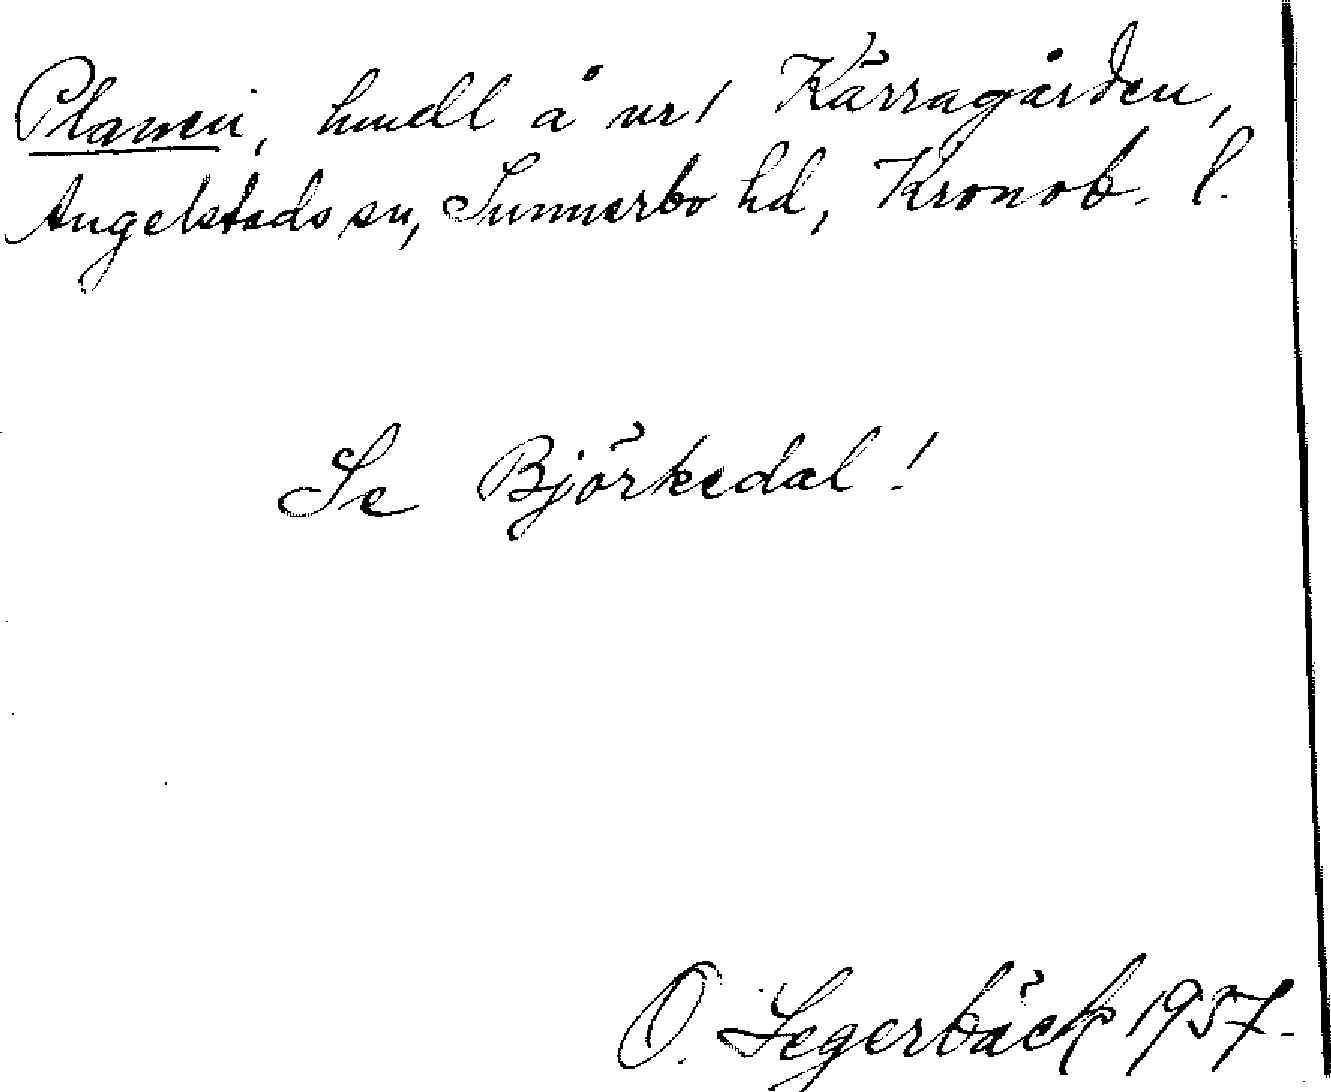 Planen, hmdl å nr 1 Kärragården,
Angelstads sn, Sunnerbo hd, Kronob. l.
Se Björkedal!
O. Segerbäck 1957.